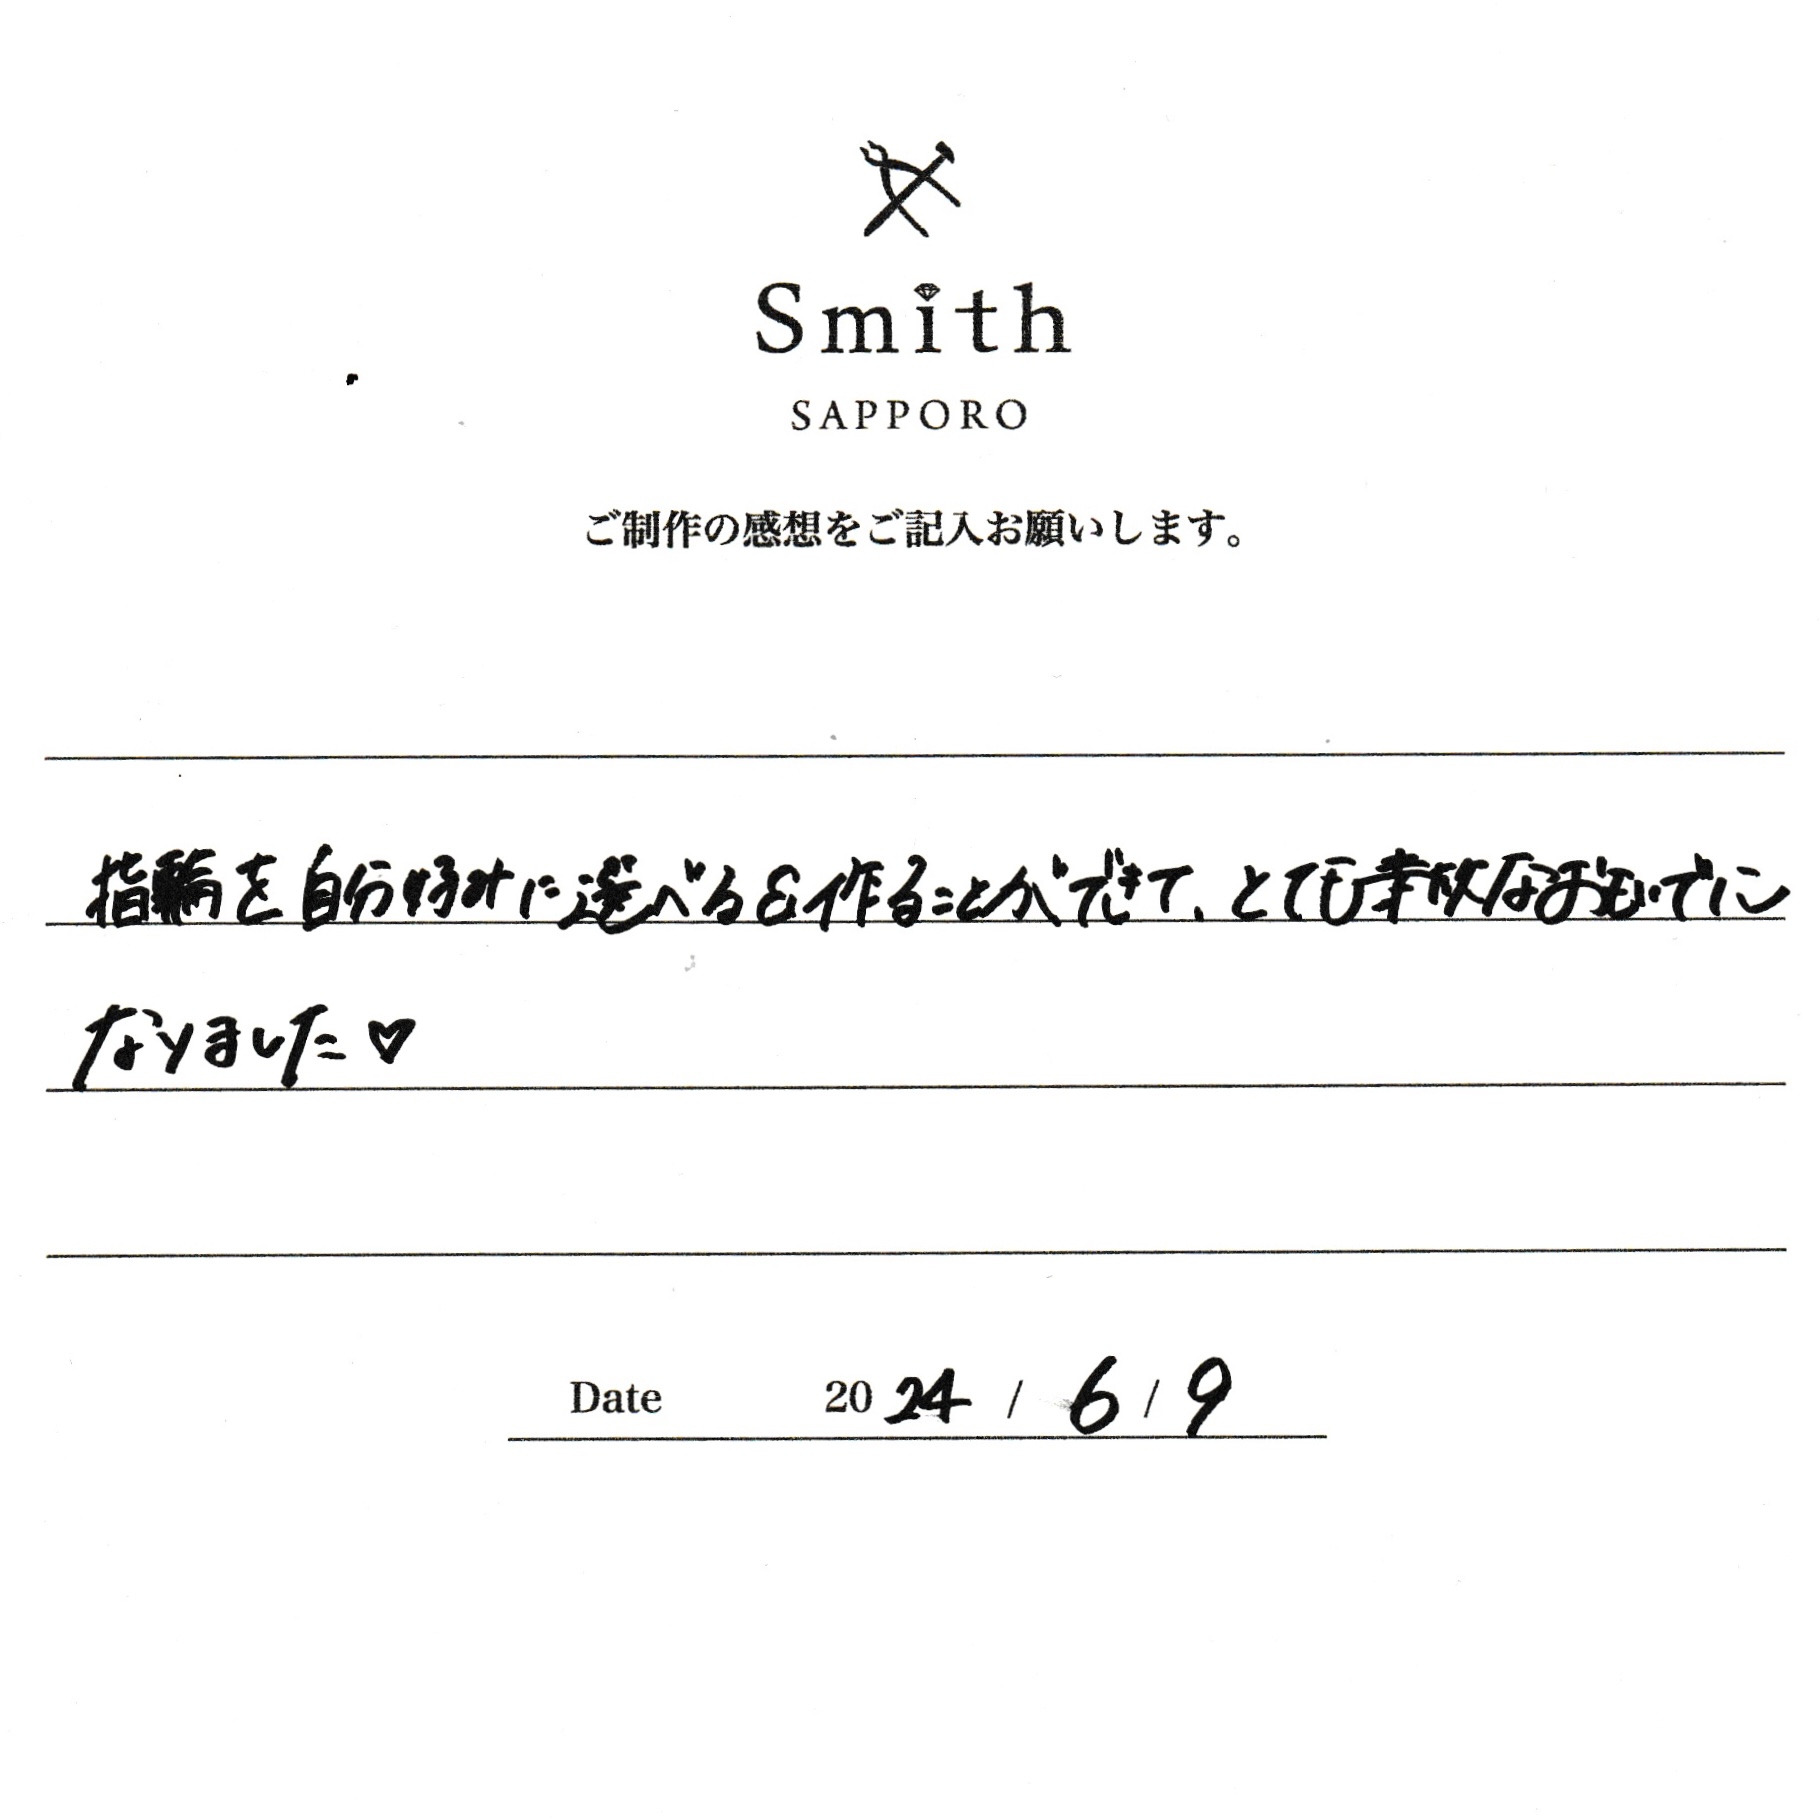 Smith
SAPPORO
ご制作の感想をご記入お願いします。
指輪を自分好みに選べる&作ることができて、とても素敵なおもいでに
なりました♡
Date 2024 / 6 / 9